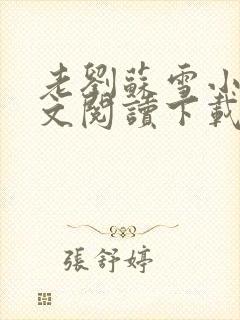 老劉蘇雪小
文閱讀下載
張舒婷